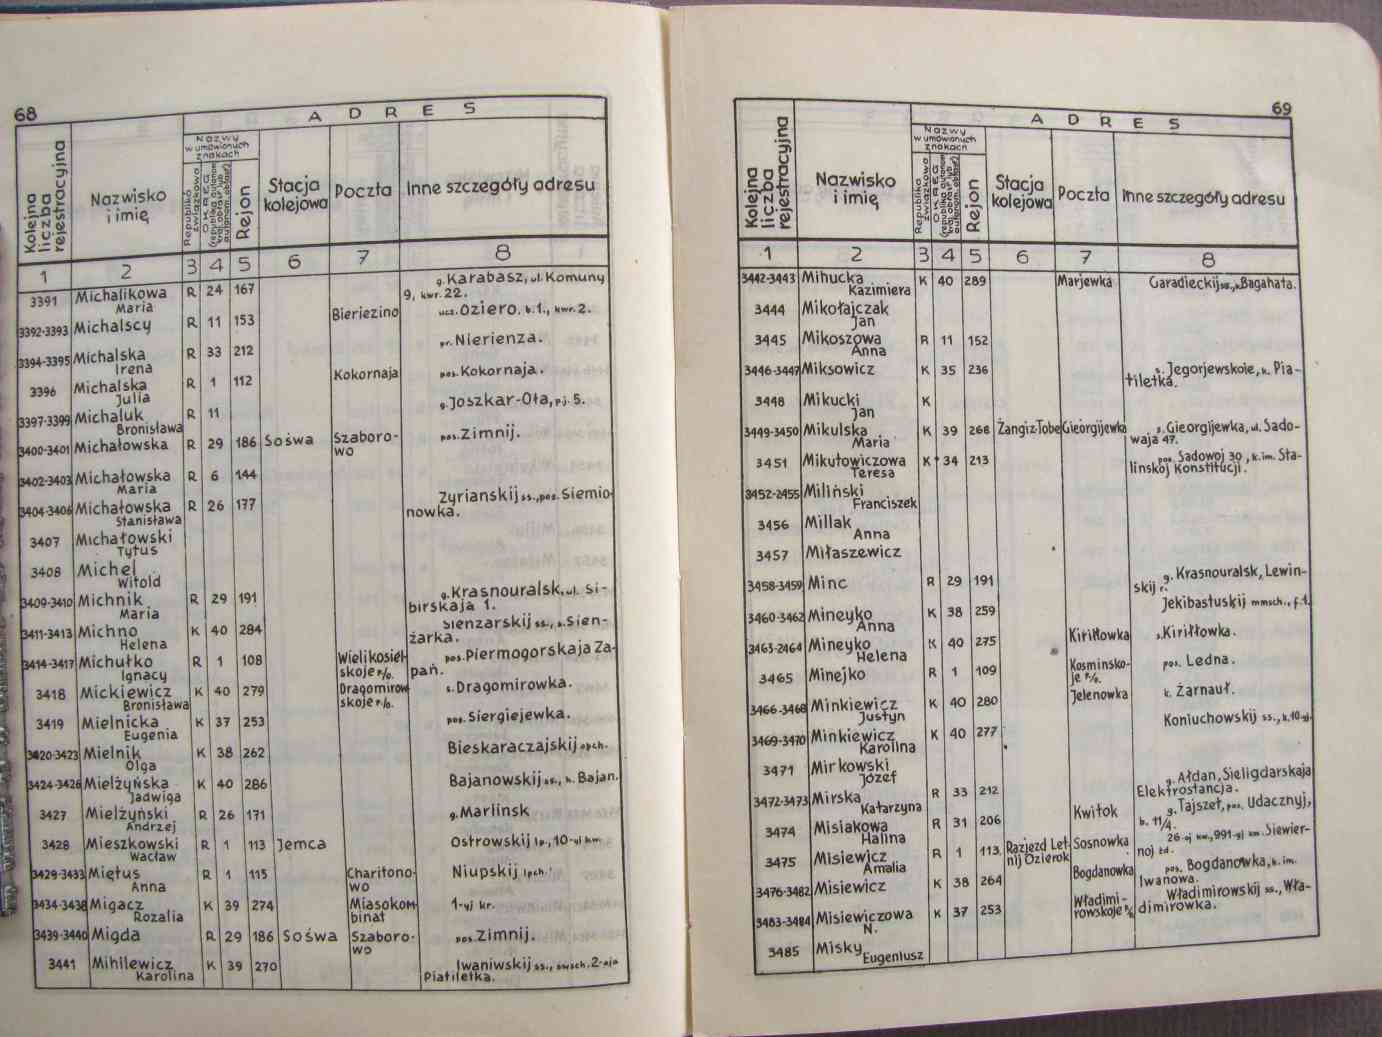 68
A D R E S
Kolejna liczba rejestracyjna
Nazwisko i imię
Nazwy w umówionych znakach
Republika związkowa
OKRĘG
Rejon
Stacja kolejowa
Poczta
Inne szczegóły adresu
1 2 3 4 5 6 7 8
3391 Michalikowa Maria R 24 167 g. Karabasz, ul. Komuny 9, kwr. 22.
3392-3393 Michalscy R 11 153 Bieriezino ucz. Oziero, b. 1., kwr. 2.
3394-3395 Michalska Irena R 33 212 pr. Nierienza.
3396 Michalska Julia R 1 112 Kokornaja pos. Kokornaja.
3397-3399 Michaluk Bronisława R 11 g. Joszkar-Oła, p.j. 5.
3400-3401 Michałowska R 29 186 Sośwa Szaborowo pos. Zimnij.
3402-3403 Michałowska Maria R 6 144
3404-3406 Michałowska Stanisława R 26 177 Zyrianskij ss., pos. Siemionowka.
3407 Michałowski Tytus
3408 Michel Witold
3409-3410 Michnik Maria R 29 191 g. Krasnouralsk, ul. Sibirskaja 1.
3411-3413 Michno Helena K 40 284 Sienzarskij ss., s. Sienżarka.
3414-3417 Michułko Ignacy R 1 108 Wielikosielskoje p/o. pos. Piermogorskaja Zapań.
3418 Mickiewicz Bronisława K 40 279 Dragomirowskoje p/o. s. Dragomirowka.
3419 Mielnicka Eugenia K 37 253 pos. Siergiejewka.
3420-3423 Mielnik Olga K 38 262 Bieskaraczajskij opch.
3424-3426 Mielżyńska Jadwiga K 40 286 Bajanowskij ss., k. Bajan.
3427 Mielżyński Andrzej R 26 171 g. Marlinsk
3428 Mieszkowski Wacław R 1 113 Jemca Ostrowskij lp., 10-yj km.
3429-3433 Miętus Anna R 1 115 Charitonowo Niupskij lpch.
3434-3438 Migacz Rozalia K 39 274 Miasokombinat 1-yj kr.
3439-3440 Migda R 29 186 Sośwa Szaborowo pos. Zimnij.
3441 Mihilewicz Karolina K 39 270 Iwaniwskij ss., swsch. 2-aja Piatiletka.
69
A D R E S
Kolejna liczba rejestracyjna
Nazwisko i imię
Nazwy w umówionych znakach
Republika związkowa
OKRĘG
Rejon
Stacja kolejowa
Poczta
Inne szczegóły adresu
1 2 3 4 5 6 7 8
3442-3443 Mihucka Kazimiera K 40 289 Marjewka Garadieckij ss., k. Bagahata.
3444 Mikołajczak Jan
3445 Mikoszowa Anna R 11 152
3446-3447 Miksowicz K 35 236 s. Jegorjewskoie, k. Piatiletka.
3448 Mikucki Jan K
3449-3450 Mikulska Maria K 39 268 Żangiz-Tobe Gieorgijewka s. Gieorgijewka, ul. Sadowaja 47.
3451 Mikutowiczowa Teresa K 34 213 pos. Sadowoj 30, k. im. Stalinskoj Konstitucji.
3452-2455 Miliński Franciszek
3456 Millak Anna
3457 Miłaszewicz
3458-3459 Minc R 29 191 g. Krasnouralsk, Lewinskij r.
3460-3462 Mineyko Anna K 38 259 Jekibastuskij mmsch., f. 1.
3463-2464 Mineyko Helena K 40 275 Kiriłłowka s. Kiriłłowka.
3465 Minejko R 1 109 Kosminskoje p/o. pos. Ledna.
3466-3468 Minkiewicz Justyn K 40 280 Jelenowka k. Żarnauł.
3469-3470 Minkiewicz Karolina K 40 277 Koniuchowskij ss., k. 10-yj.
3471 Mirkowski Józef
3472-3473 Mirska Katarzyna R 33 212 g. Ałdan, Sieligdarskaja Elektrostancja.
3474 Misiakowa Halina R 31 206 Kwitok g. Tajszet, pos. Udacznyj, b. 11/4.
3475 Misiewicz Amalia R 1 113 Razjezd Letnij Ozierok Sosnowka 26-oj kw., 991-yj km. Siewiernoj żd.
3476-3482 Misiewicz K 38 264 Bogdanowka pos. Bogdanowka, k. im. Iwanowa.
3483-3484 Misiewiczowa N. K 37 253 Władimirowskoje p/o. Władimirowskij ss., Władimirowka.
3485 Misky Eugeniusz